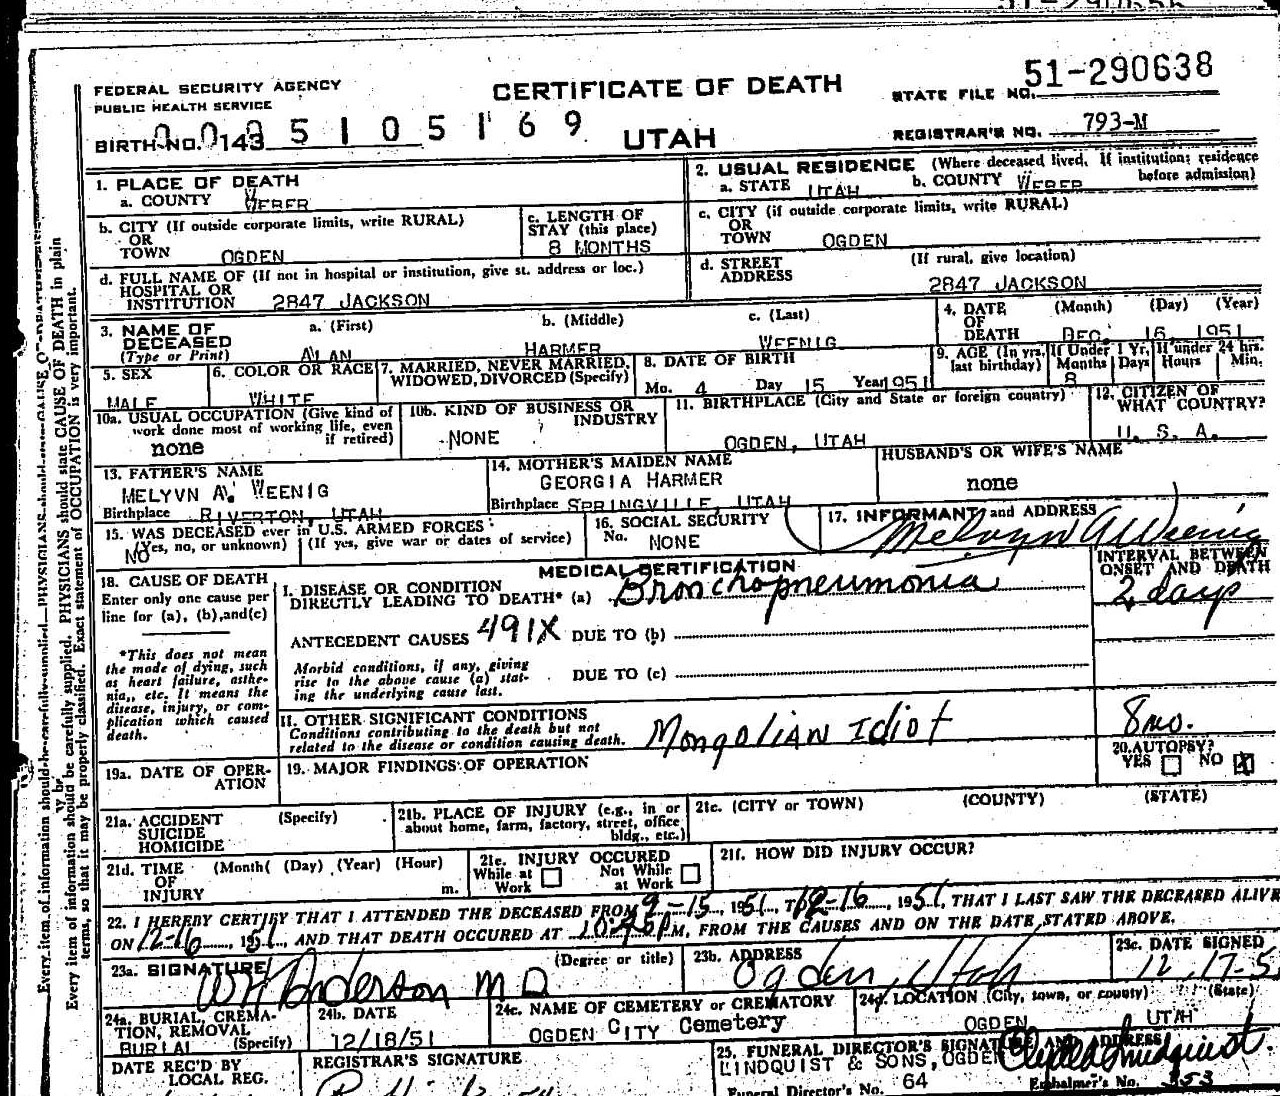 FEDERAL SECURITY AGENCY
PUBLIC HEALTH SERVICE
CERTIFICATE OF DEATH
STATE FILE NO. 51-290638
BIRTH NO. 143
UTAH
REGISTRAR'S NO. 793-M
1. PLACE OF DEATH
a. COUNTY WEBER
2. USUAL RESIDENCE (Where deceased lived. If institution: residence before admission)
a. STATE UTAH b. COUNTY WEBER
b. CITY (If outside corporate limits, write RURAL)
OR
TOWN OGDEN
c. LENGTH OF
STAY (this place)
8 MONTHS
c. CITY (if outside corporate limits, write RURAL)
OR
TOWN OGDEN
d. FULL NAME OF (If not in hospital or institution, give st. address or loc.)
HOSPITAL OR
INSTITUTION 2847 JACKSON
d. STREET
ADDRESS
(If rural, give location)
2847 JACKSON
3. NAME OF
DECEASED
(Type or Print)
a. (First)
ALAN
b. (Middle)
HARMER
c. (Last)
WEENIG
4. DATE
OF
DEATH
(Month) (Day) (Year)
DEC. 16, 1951
5. SEX
MALE
6. COLOR OR RACE
WHITE
7. MARRIED, NEVER MARRIED,
WIDOWED, DIVORCED (Specify)
8. DATE OF BIRTH
Mo. 4 Day 15 Year 1951
9. AGE (In yrs.
last birthday)
If Under 1 Yr.
Months Days
8
If under 24 hrs.
Hours Min.
10a. USUAL OCCUPATION (Give kind of
work done most of working life, even
if retired)
none
10b. KIND OF BUSINESS OR
INDUSTRY
NONE
11. BIRTHPLACE (City and State or foreign country)
OGDEN, UTAH
12. CITIZEN OF
WHAT COUNTRY?
U. S. A.
13. FATHER'S NAME
MELYVN A. WEENIG
Birthplace RIVERTON, UTAH
14. MOTHER'S MAIDEN NAME
GEORGIA HARMER
Birthplace SPRINGVILLE, UTAH
HUSBAND'S OR WIFE'S NAME
none
15. WAS DECEASED ever in U.S. ARMED FORCES
(Yes, no, or unknown) (If yes, give war or dates of service)
NO
16. SOCIAL SECURITY
No. NONE
17. INFORMANT and ADDRESS
Melvyn A Weenig
MEDICAL CERTIFICATION
INTERVAL BETWEEN
ONSET AND DEATH
18. CAUSE OF DEATH
Enter only one cause per
line for (a), (b), and (c)
*This does not mean
the mode of dying, such
as heart failure, asthe-
nia, etc. It means the
disease, injury, or com-
plication which caused
death.
I. DISEASE OR CONDITION
DIRECTLY LEADING TO DEATH* (a) Bronchopneumonia
2 days
ANTECEDENT CAUSES 491X DUE TO (b)
Morbid conditions, if any, giving
rise to the above cause (a) stat-
ing the underlying cause last.
DUE TO (c)
II. OTHER SIGNIFICANT CONDITIONS
Conditions contributing to the death but not
related to the disease or condition causing death.
Mongolian Idiot
8 mo.
19a. DATE OF OPER-
ATION
19. MAJOR FINDINGS OF OPERATION
20. AUTOPSY?
YES NO X
21a. ACCIDENT
SUICIDE
HOMICIDE
(Specify)
21b. PLACE OF INJURY (e.g., in or
about home, farm, factory, street, office
bldg., etc.)
21c. (CITY or TOWN) (COUNTY) (STATE)
21d. TIME
OF
INJURY
(Month( (Day) (Year) (Hour)
m.
21e. INJURY OCCURED
While at Work Not While at Work
21f. HOW DID INJURY OCCUR?
22. I HEREBY CERTIFY THAT I ATTENDED THE DECEASED FROM 9-15, 1951, TO 12-16, 1951, THAT I LAST SAW THE DECEASED ALIVE
ON 12-16, 1951, AND THAT DEATH OCCURED AT M, FROM THE CAUSES AND ON THE DATE STATED ABOVE.
23a. SIGNATURE
Anderson M D
(Degree or title)
23b. ADDRESS
Ogden, Utah
23c. DATE SIGNED
12, 17-5
24a. BURIAL, CREMA-
TION, REMOVAL
(Specify)
BURIAL
24b. DATE
12/18/51
24c. NAME OF CEMETERY or CREMATORY
OGDEN CITY Cemetery
24d. LOCATION (City, town, or county) (State)
OGDEN UTAH
DATE REC'D BY
LOCAL REG.
REGISTRAR'S SIGNATURE
25. FUNERAL DIRECTOR'S SIGNATURE AND ADDRESS
LINDQUIST & SONS, OGDEN
Funeral Director's No. 64
Embalmer's No. 353
Every item of information should be carefully supplied. PHYSICIANS should state CAUSE OF DEATH in plain
terms, so that it may be properly classified. Exact statement of OCCUPATION is very important.